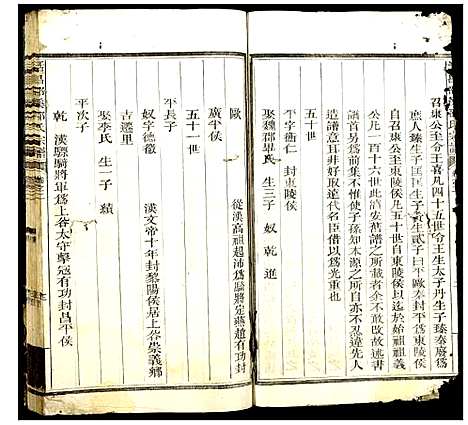 召康公至令王喜凡四十五世令王生太子丹生子臻秦廢爲
庶人臻生子匡匡生子實生貳子曰平歐方封平爲東陵侯
自召康公至東陵侯凡五十世自東陵侯以至始祖祖義
公凡一百十六世此清安舊譜之所載者余不敢放述書
譜首另爲前集不惟使子孫知本源之所自亦不忍違先人
譜意耳非好取遠代名臣借以爲光重也
平字衛仁 封東陵侯
娶魏郡畢氏 生三子 奴 乾 進
歐 從漢高祖起沛爲驃將定燕趙有功封
廣平侯
五十一世
平長子
奴字德徵 漢文帝十年封黎陽侯居上谷崇義鄉
吉遷里
娶李氏 生一子 績
平次子
乾 漢驃騎將軍爲上谷太守擊寇有功封昌平侯